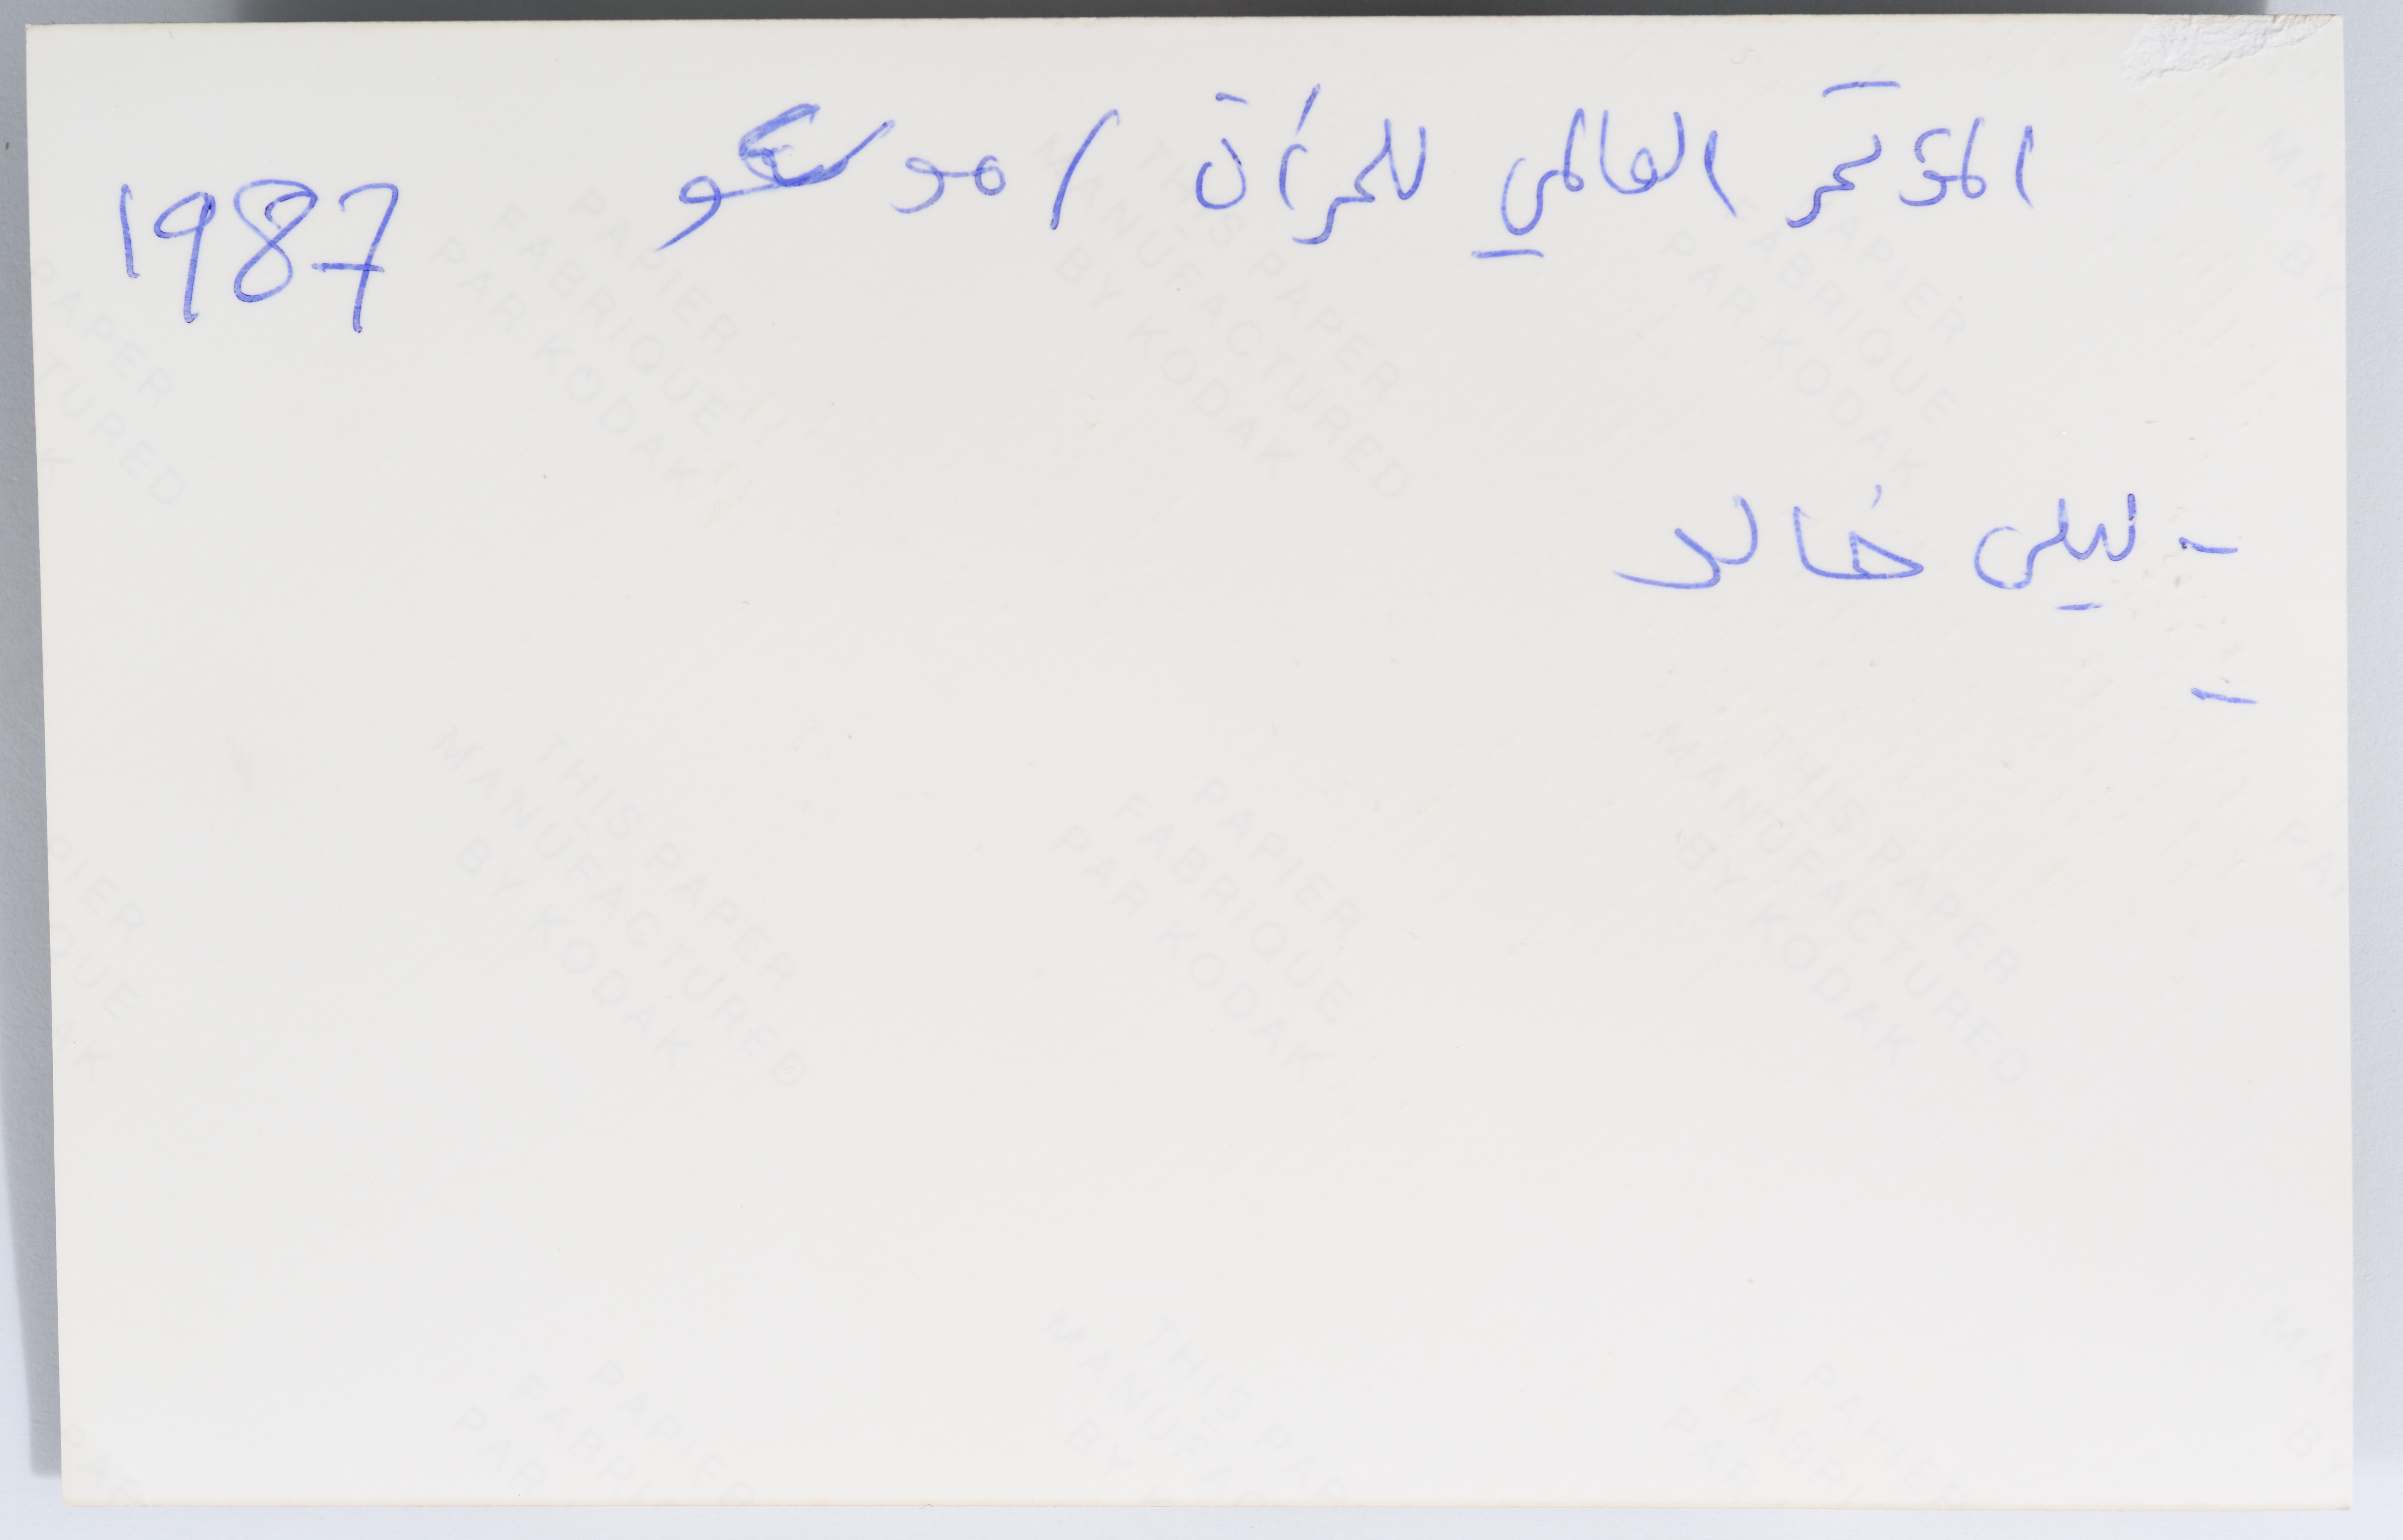 المؤتمر العالمي للمرأة / موسكو 1987
- ليلى خالد
-
THIS PAPER MANUFACTURED BY KODAK
PAPIER FABRIQUE PAR KODAK